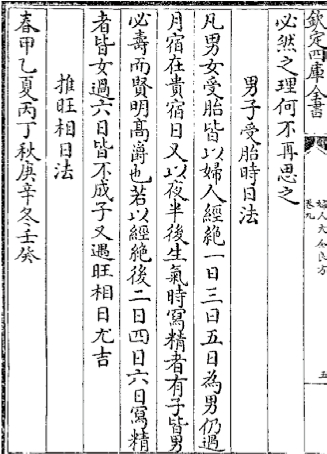 欽定四庫全書
婦人大全良方
卷九
五
必然之理何不再思之
男子受胎時日法
凡男女受胎皆以婦人經絕一日三日五日為男仍遇
月宿在貴宿日又以夜半後生氣時寫精者有子皆男
必壽而賢明髙爵也若以經絕後二日四日六日寫精
者皆女過六日皆不成子又遇旺相日尤吉
推旺相日法
春甲乙夏丙丁秋庚辛冬壬癸